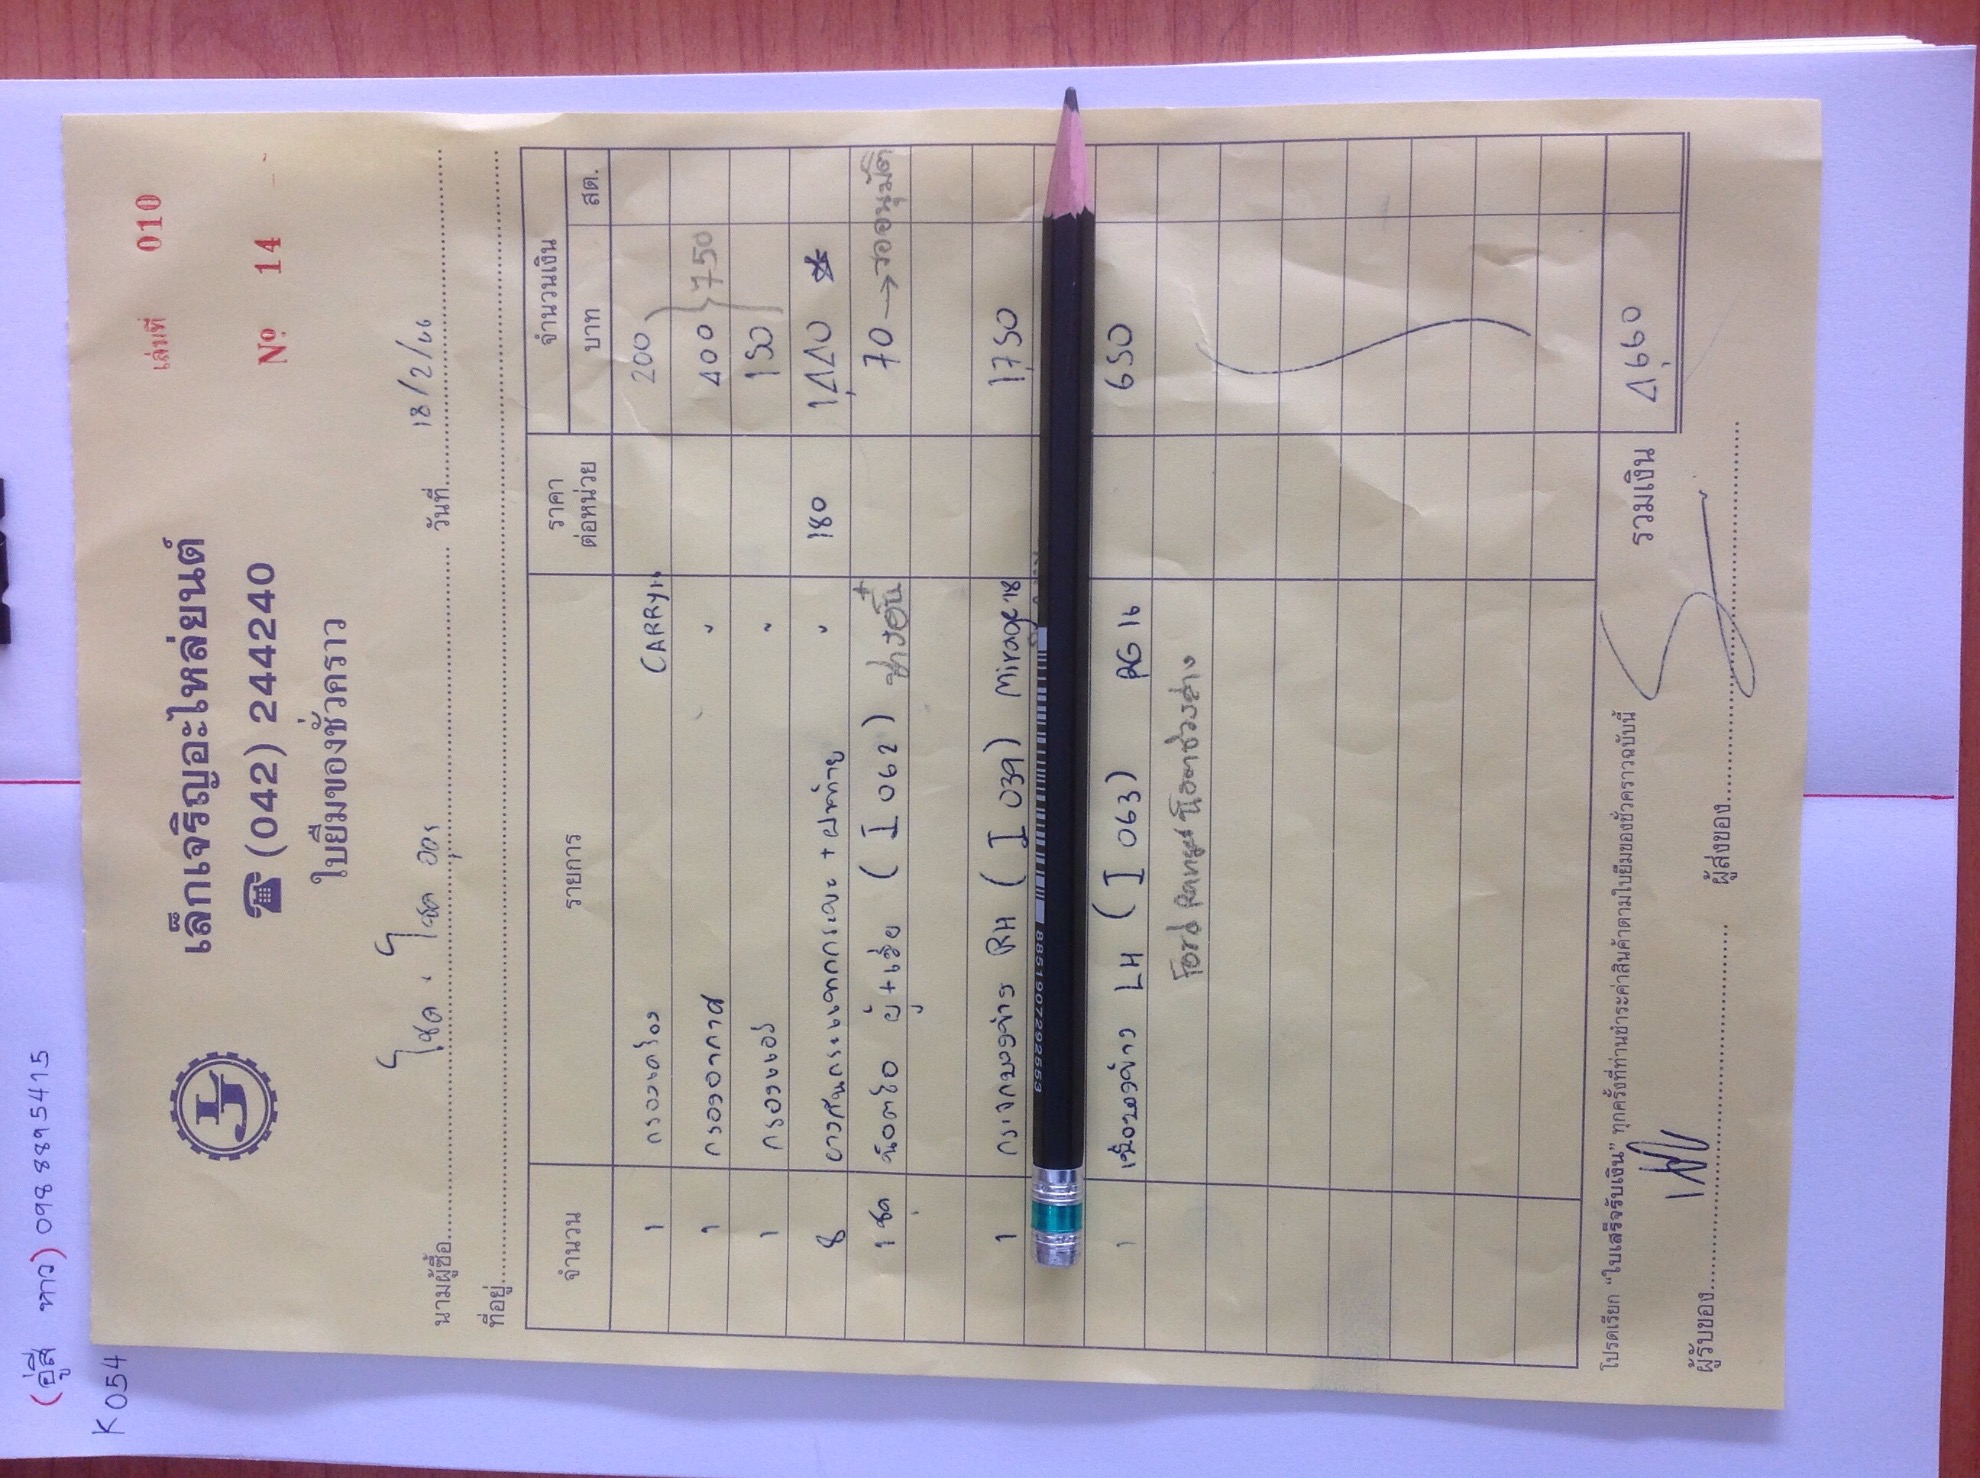 (อู่สี หาว) 098 8895415
K 054
เล่มที่ 010
เล็กเจริญอะไหล่ยนต์
Nº 14
☎ (042) 244240
ใบยืมของชั่วคราว
นามผู้ซื้อ โชค . โชค อุดร วันที่ 18/2/66
ที่อยู่
จำนวน รายการ ราคา ต่อหน่วย จำนวนเงิน บาท สต.
1 กรองเครื่อง CARRY 200
1 กรองอากาศ " 400 } 750
1 กรองแอร์ " 150
8 กระบะ + ฝาท้าย " 180 1,440
1 ชุด น๊อตล้อ ผู้+เมีย ( I 062 ) 70 → รออนุมัติ
1 กระจกมองข้าง RH ( I 039 ) Mirage 18 1,750
8851907292653
1 LH ( I 063 ) RG 16 650
Ford Ranger น๊อตช่วงล่าง
รวมเงิน 4,660
โปรดเรียก "ใบเสร็จรับเงิน" ทุกครั้งที่ท่านชำระค่าสินค้าตามใบยืมของชั่วคราวฉบับนี้
ผู้รับของ ผู้ส่งของ